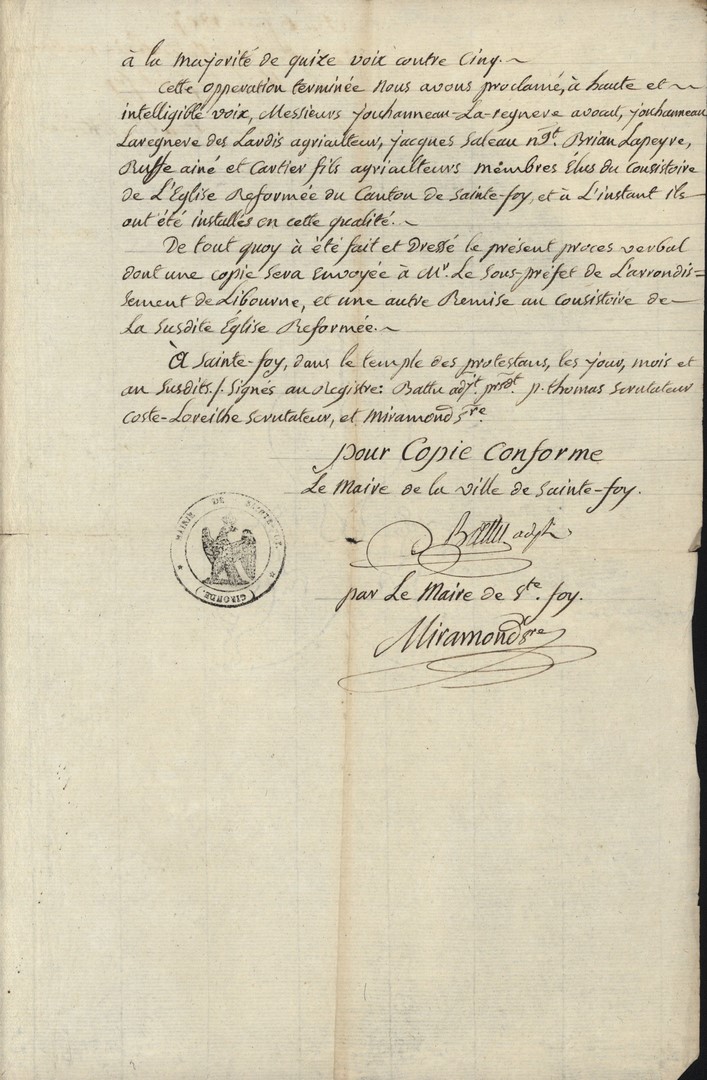 à la majorité de quize voix contre Cinq. ~
Cette opperation terminée nous avons proclamé, à haute et ~
intelligible voix, Messieurs jouhanneau-La-regnere avocat, jouhanneau
Laregnere des Lardis agriculteur, jacques Saleau ngt. Brian Lapeyre,
Ruffe ainé et Cartier fils agriculteurs membres Élus du Consistoire
de L'Eglise Reformée du Canton de Sainte-foy, et à L'instant ils
ont été installés en cette qualité. ~
De tout quoy à été fait et Dressé le présent proces verbal
dont une copie sera envoyée à Mr. Le Sous-préfet de L'arrondis=
sement de Libourne, et une autre Remise au Consistoire de
La Susdite Église Reformée. ~
À Sainte-foy, dans le temple des protestans, les jour, mois et
an Susdits /. Signés au Registre: Battu adjt. prsdt. p. thomas Scrutateur
Coste-Loreilhe Scrutateur, et Miramond Sre.
pour Copie Conforme
Le Maire de la ville de Sainte-foy.
Battu adjt
par Le Maire de Ste. foy.
Miramond Sre
MAIRIE DE SAINTE-FOY.
(GIRONDE.)